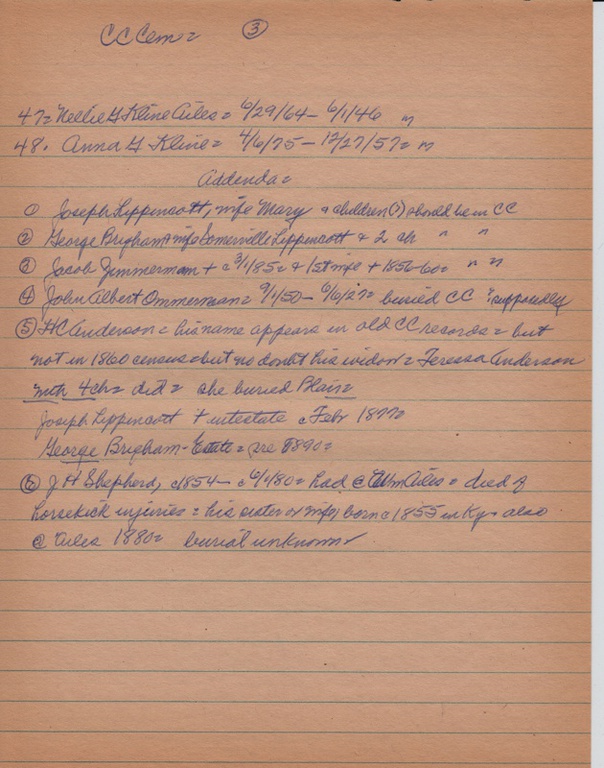 CC Cem= ③
47= Nellie G Kline Ailes= 6/29/64 - 6/1/46 m
48. Anna G Kline= 4/6/75 - 12/27/57= m
Addenda=
① Joseph Lippincott, wife Mary & children(?) should be in CC
② George Brigham & wife Somerville Lippincott & 2 ch " "
③ Jacob Zimmerman + c 3/1/85= & 1st wife + 1856-60= " "
④ John Albert Ommerman= 9/1/50 - 6/6/27= buried CC supposedly
⑤ HC Anderson= his name appears in old CC records= but
not in 1860 census= but no doubt his widow= Teressa Anderson
with 4 ch= did= she buried Blain=
Joseph Lippincott + intestate c Febr 1877=
George Brigham- Estate= pre 1890=
⑥ J H Shepherd, c1854- c 6/1/80= had @ Wm Ailes= died of
horsekick injuries= his sister or wife, born c 1855 in Ky= also
@ Ailes 1880= burial unknown